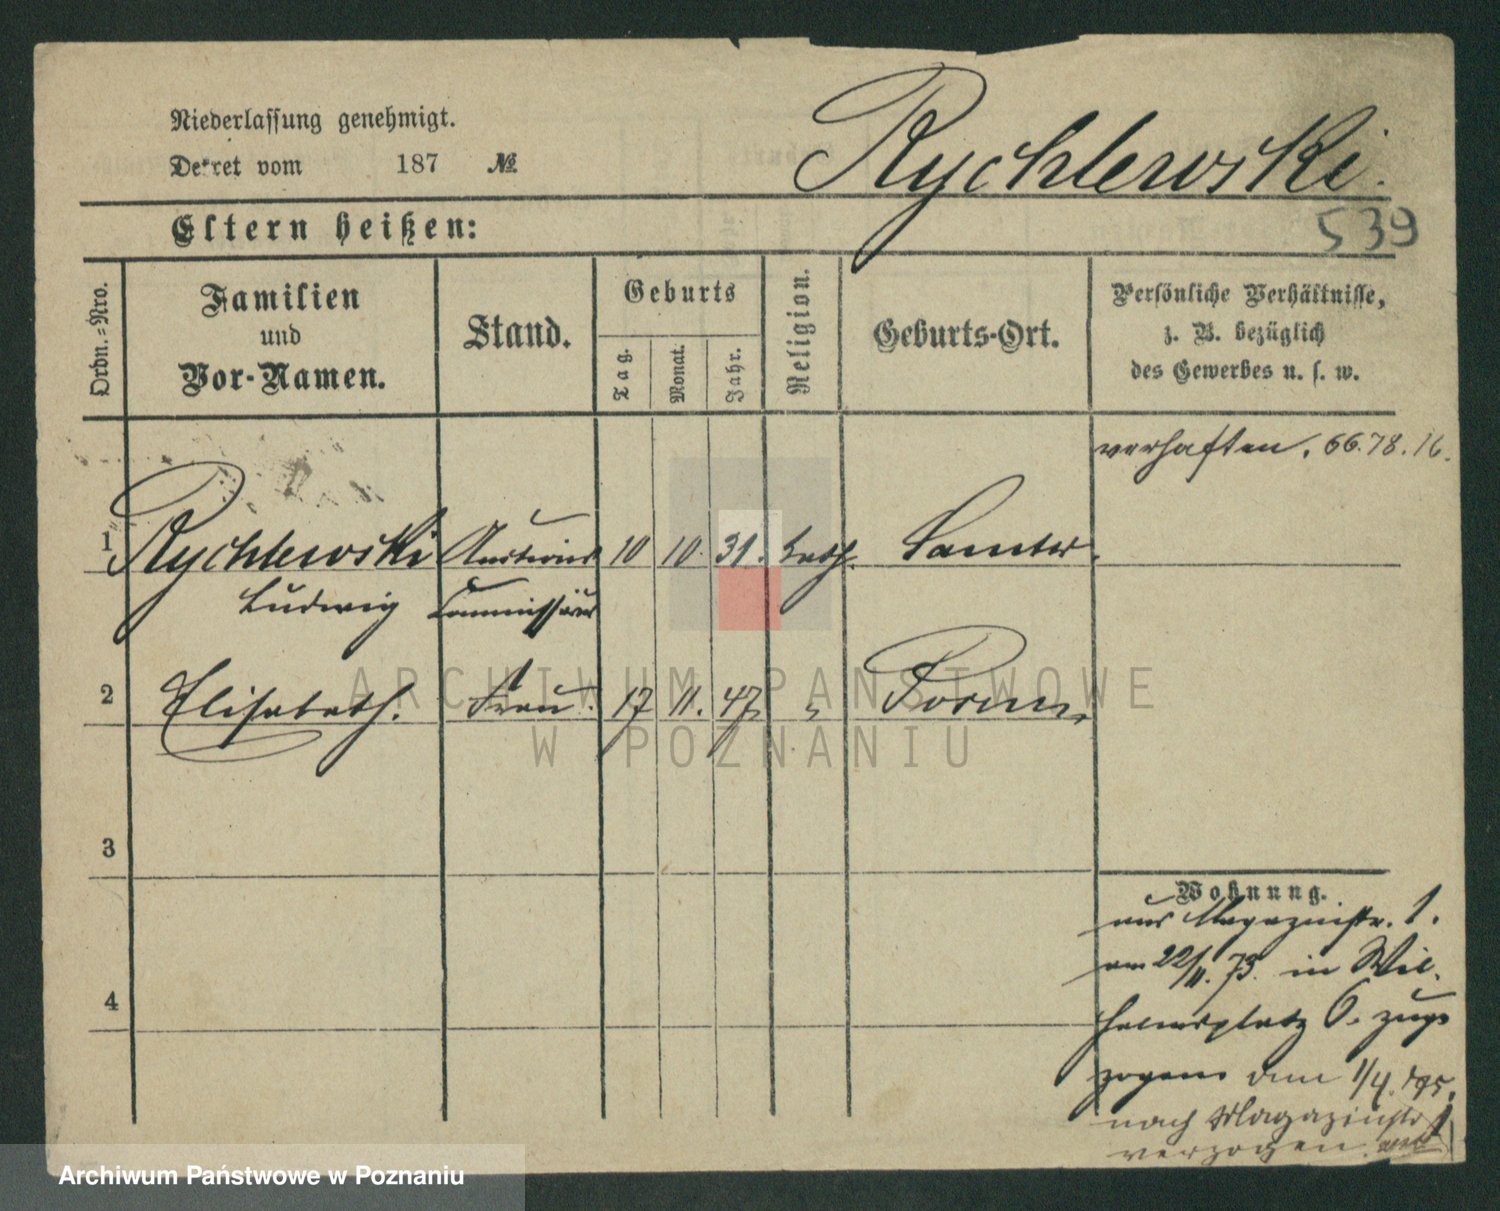 Niederlassung genehmigt.
Dekret vom 187 №
Rychlewski.
539
Eltern heißen:
Ordn.-Nro.
Familien
und
Vor-Namen.
Stand.
Geburts
Tag.
Monat.
Jahr.
Religion.
Geburts-Ort.
Persönliche Verhältnisse,
z. B. bezüglich
des Gewerbes u. s. w.
verhaften. 66.78.16.
1 Rychlewski Auctions 10 10. 31. kath. Samter.
Ludwig Commissär
2 Elisabeth. Frau. 17 11. 47 Posen.
3
4
Wohnung.
aus Magazinstr. 1.
am 22/11. 73. in Wil-
helmsplatz 6. zuge
zogen den 1/4. 75.
nach Magazinstr 1
verzogen.
ARCHIWUM PAŃSTWOWE
W POZNANIU
Archiwum Państwowe w Poznaniu